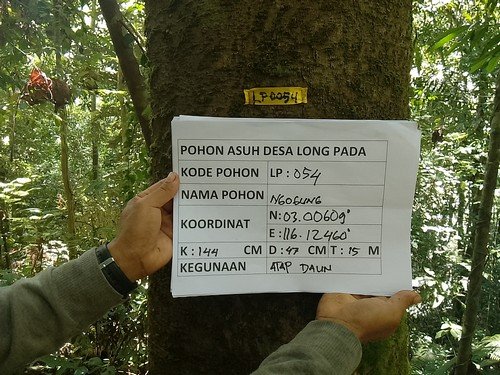 LP0054
POHON ASUH DESA LONG PADA
KODE POHON LP : 054
NAMA POHON NGOGUNG
KOORDINAT N : 03.00609°
E : 116.12460°
K : 144 CM D : 47 CM T : 15 M
KEGUNAAN ATAP DAUN